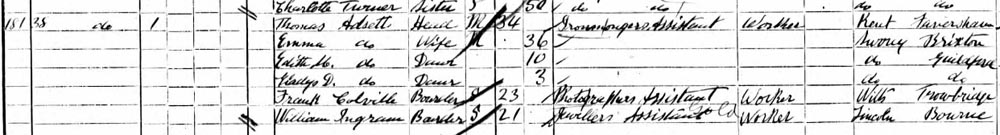 Charlotte Turner Sister S 50 do do do do
181 38 do 1 Thomas Adsett Head M 34 Ironmongers Assistant Worker Kent Faversham
Emma do Wife M 36 Surrey Brixton
Edith M. do Daur 10 do Guildford
Gladys D. do Daur 3 do do
Frank Colville Boarder S 23 Photographers Assistant Worker Wilts Trowbridge
William Ingram Boarder S 21 Jewellers Assistant Worker Lincoln Bourne